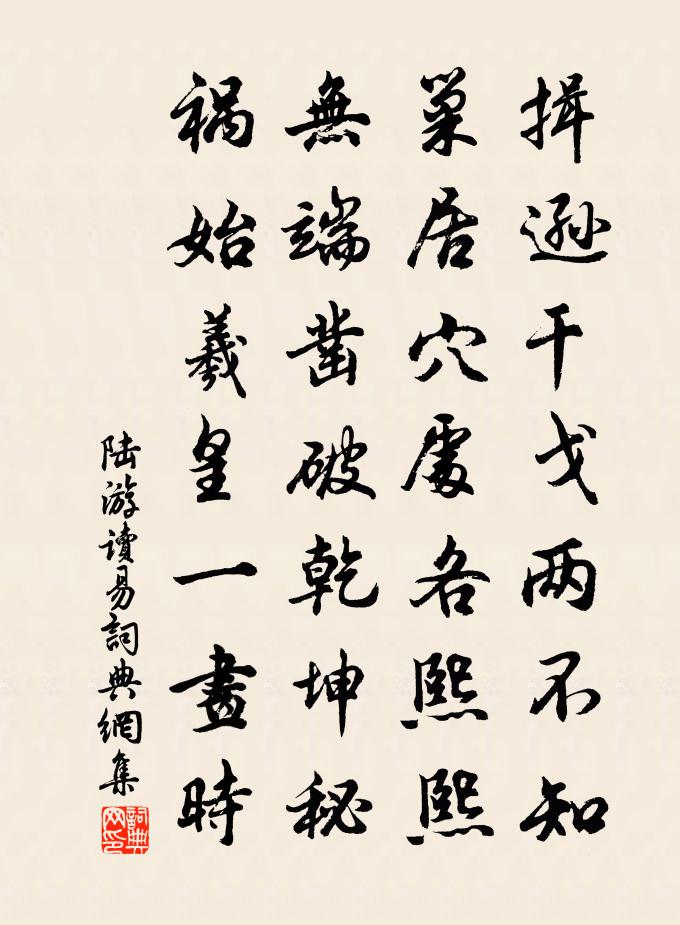 揖遜干戈两不知
巢居穴處各熙熙
無端凿破乾坤秘
禍始羲皇一畫時
陆游讀易詞典網集
詞典网印